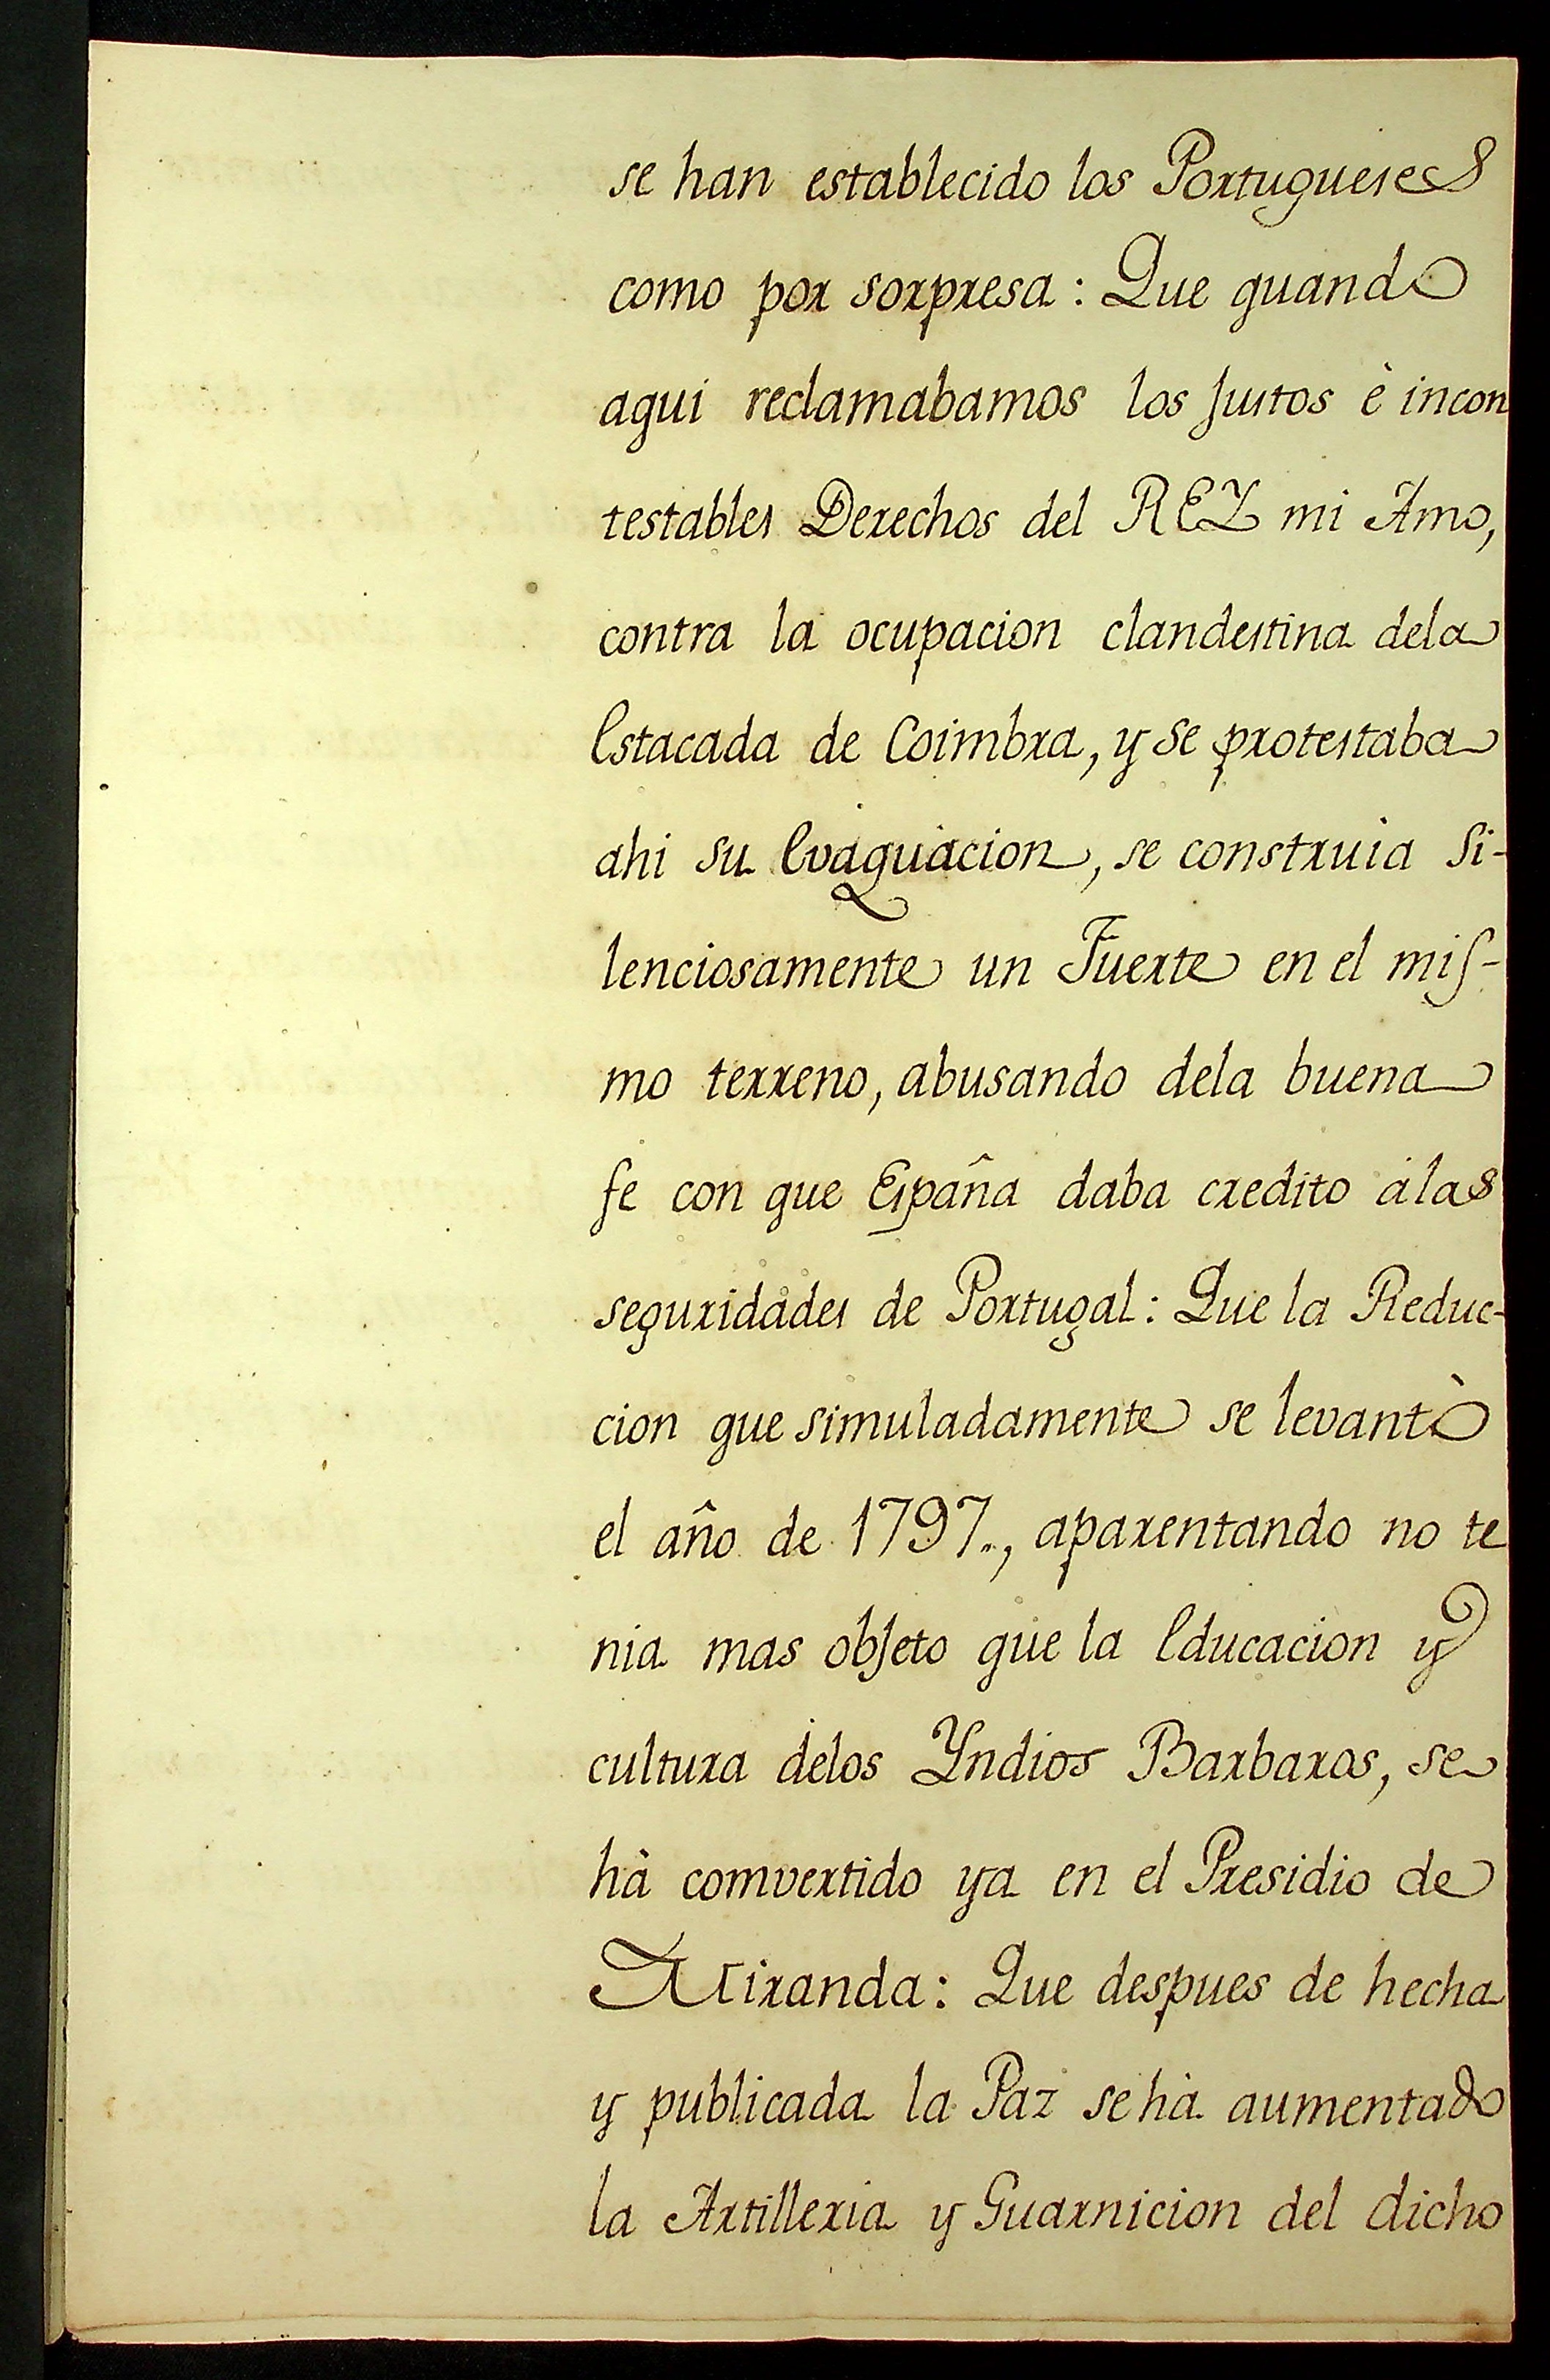 se han establecido los Portugueses
como por sorpresa: Que quando
aqui reclamabamos los justos è incon
testables Derechos del REY mi Amo,
contra la ocupacion clandestina dela
Estacada de Coimbra, y se protestaba
ahi su Evaquacion, se construia si-
lenciosamente un Fuerte en el mis-
mo terreno, abusando dela buena
fe con que España daba credito àlas
seguridades de Portugal: Que la Reduc-
cion que simuladamente se levantò
el año de 1797., aparentando no te
nia mas objeto que la Educacion y
cultura delos Yndios Barbaros, se
hà comvertido ya en el Presidio de
Miranda: Que despues de hecha
y publicada la Paz se hà aumentado
la Artilleria y Guarnicion del dicho